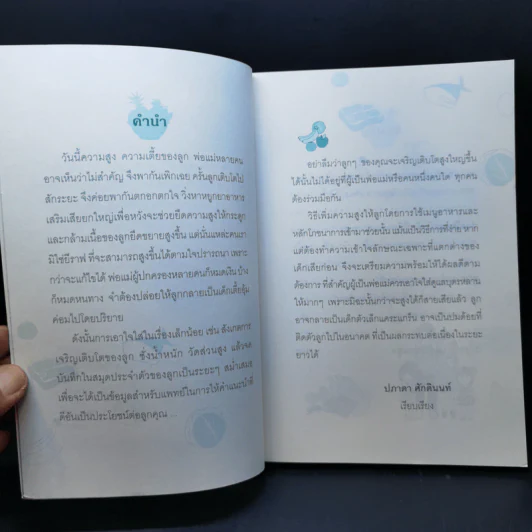 คำนำ
วันนี้ความสูง ความเตี้ยของลูก พ่อแม่หลายคน
อาจเห็นว่าไม่สำคัญ จึงพากันเพิกเฉย ครั้นลูกเติบโตไป
สักระยะ จึงค่อยพากันตกอกตกใจ วิ่งหาหยูกยาอาหาร
เสริมเสียยกใหญ่เพื่อหวังจะช่วยยืดความสูงให้กระดูก
และกล้ามเนื้อของลูกยืดขยายสูงขึ้น แต่นั่นแหละคนเรา
มิใช่ยีราฟ ที่จะสามารถสูงขึ้นได้ตามใจปรารถนา เพราะ
กว่าจะแก้ไขได้ พ่อแม่ผู้ปกครองหลายคนก็หมดเงิน บ้าง
ก็หมดหนทาง จำต้องปล่อยให้ลูกกลายเป็นเด็กเตี้ยอุ้ม
ค่อมไปโดยปริยาย
ดังนั้นการเอาใจใส่ในเรื่องเล็กน้อย เช่น สังเกตการ
เจริญเติบโตของลูก ชั่งน้ำหนัก วัดส่วนสูง แล้วจด
บันทึกในสมุดประจำตัวของลูกเป็นระยะๆ สม่ำเสมอ
เพื่อจะได้เป็นข้อมูลสำหรับแพทย์ในการให้คำแนะนำที่
ดีอันเป็นประโยชน์ต่อลูกคุณ
อย่าลืมว่าลูกๆ ของคุณจะเจริญเติบโตสูงใหญ่ขึ้น
ได้นั้นไม่ได้อยู่ที่ผู้เป็นพ่อแม่หรือคนหนึ่งคนใด ทุกคน
ต้องร่วมมือกัน
วิธีเพิ่มความสูงให้ลูกโดยการใช้เมนูอาหารและ
หลักโภชนาการเข้ามาช่วยนั้น แม้เป็นวิธีการที่ง่าย หาก
แต่ต้องทำความเข้าใจลักษณะเฉพาะที่แตกต่างของ
เด็กเสียก่อน จึงจะเตรียมความพร้อมให้ได้ผลดีตาม
ต้องการ ที่สำคัญผู้เป็นพ่อแม่ควรเอาใจใส่ดูแลบุตรหลาน
ให้มากๆ เพราะมิฉะนั้นกว่าจะสูงได้ก็สายเสียแล้ว ลูก
อาจกลายเป็นเด็กตัวเล็กแคระแกร็น อาจเป็นปมด้อยที่
ติดตัวลูกไปในอนาคต ที่เป็นผลกระทบต่อเนื่องในระยะ
ยาวได้
ปภาดา ศักดินนท์
เรียบเรียง